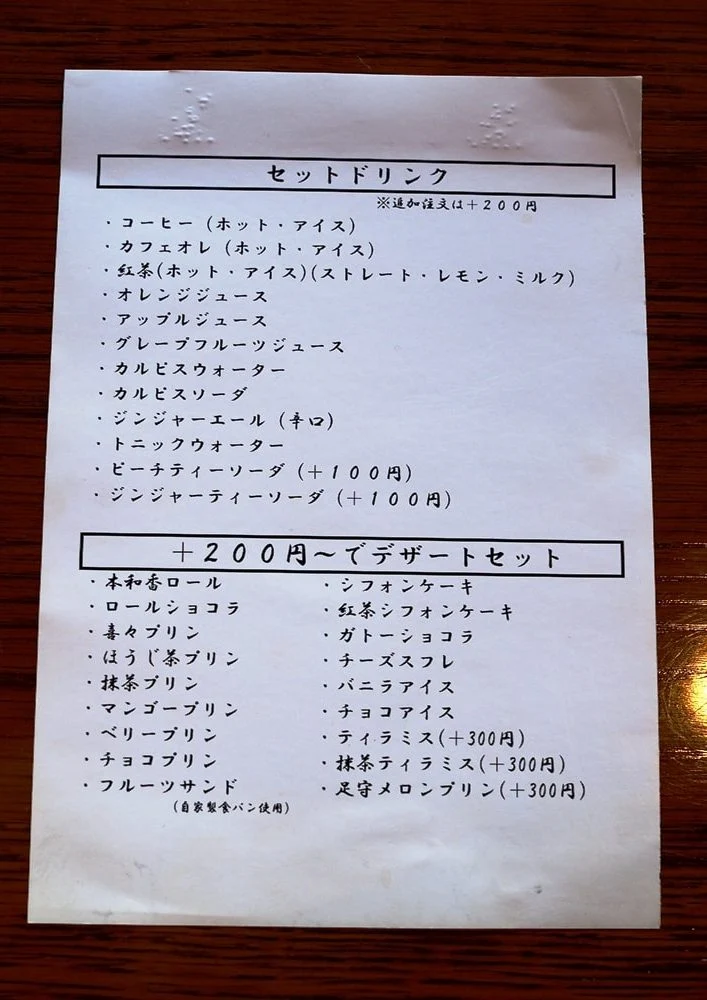 セットドリンク
※追加注文は＋２００円
・コーヒー（ホット・アイス）
・カフェオレ（ホット・アイス）
・紅茶(ホット・アイス)(ストレート・レモン・ミルク)
・オレンジジュース
・アップルジュース
・グレープフルーツジュース
・カルピスウォーター
・カルピスソーダ
・ジンジャーエール（辛口）
・トニックウォーター
・ピーチティーソーダ（＋１００円）
・ジンジャーティーソーダ（＋１００円）
＋２００円～でデザートセット
・本和香ロール
・ロールショコラ
・喜々プリン
・ほうじ茶プリン
・抹茶プリン
・マンゴープリン
・ベリープリン
・チョコプリン
・フルーツサンド
（自家製食パン使用）
・シフォンケーキ
・紅茶シフォンケーキ
・ガトーショコラ
・チーズスフレ
・バニラアイス
・チョコアイス
・ティラミス(＋300円)
・抹茶ティラミス(＋300円)
・足守メロンプリン(＋300円)